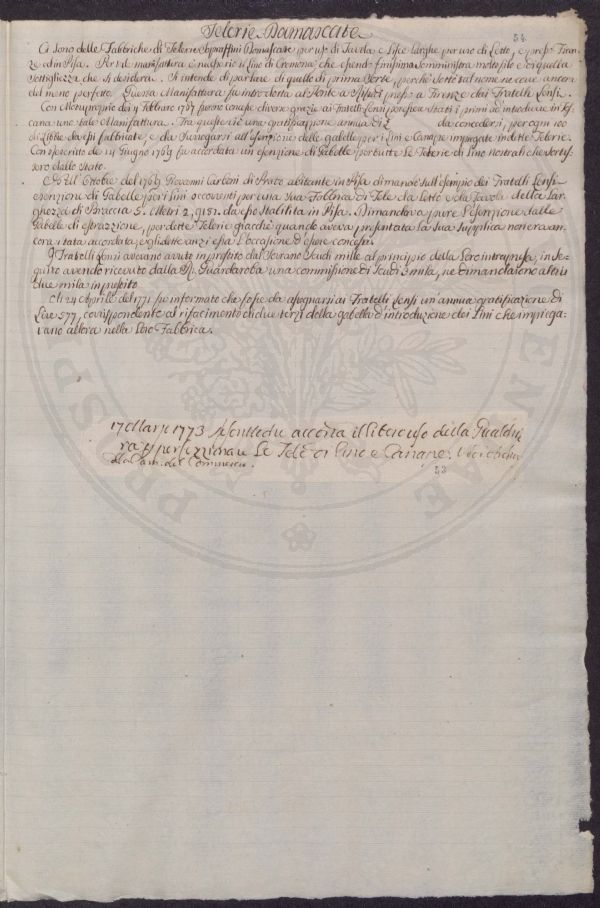 Telerie Damascate
54.
Ci sono delle Fabbriche di Telerie sopraffini Damascate per uso di Tavola e Lisce larghe per uso di Letto, e presso Firen-
ze ed in Pisa. Per tal manifattura è necessario il Lino di Cremona che essendo finissimo somministra molto filo e di quella
sottigliezza che si desidera. S'intende di parlare di quello di prima Sorte, perchè sotto tal nome ne viene ancora
del meno perfetto. Questa Manifattura fu introdotta al Ponte a Rifredi presso a Firenze dai Fratelli Lensi.
Con Motuproprio dei 9 Febbraio 1767 furono concesse diverse grazie ai Fratelli Lensi per essere stati i primi ad introdurre in Tos-
cana una tale Manifattura. Tra queste vi è una gratificazione annua di £ da concedersi, per ogni 100
di Libbre da essi fabbricate, e da Privoegarsi all'esenzione delle gabelle per i Lini e Canape impiegate in dette Telerie.
Con rescritto de 14 Giugno 1769 fu accordata un esenzione di Gabelle per tutte le Telerie di Lino nostrali che sortis-
sero dallo Stato.
Nell'Ottobre del 1769 Giovanni Carloni di Prato abitante in Pisa dimandò sull'esempio dei Fratelli Lensi
esenzione di Gabelle per i Lini occorrenti per una sua Fabbrica di Tele da Letto e da Tavola della Lar-
ghezza di Braccia 5. Metri 2,9181. da esso stabilita in Pisa. Dimandava pure l'esenzione dalle
Gabelle di estrazione, per dette Telerie giacchè quando aveva presentata la sua supplica non era an-
cora stata accordata, egli dette anzi essa l'occasione d'essere concessa.
I Fratelli Lensi avevano avuto in prestito dal Sovrano Scudi mille al principio della Loro intrapresa, in se-
guito avendo ricevuto dalla R. Guardaroba una commissione di Scudi 2 mila, ne dimandarono altri
due mila in prestito.
Ai 24 Aprile del 1771 fu informato che fosse da assegnarsi ai Fratelli Lensi un'annua gratificazione di
Lire 577, corrispondente al rifacimento di due terzi della gabella d'introduzione dei Lini che impiega-
vano allora nella Loro Fabbrica.
17 Marzo 1773 accorda il libero uso della Gualchie
ra per perfezzionare le Tele di Lino e Canape.
del Commercio.
53